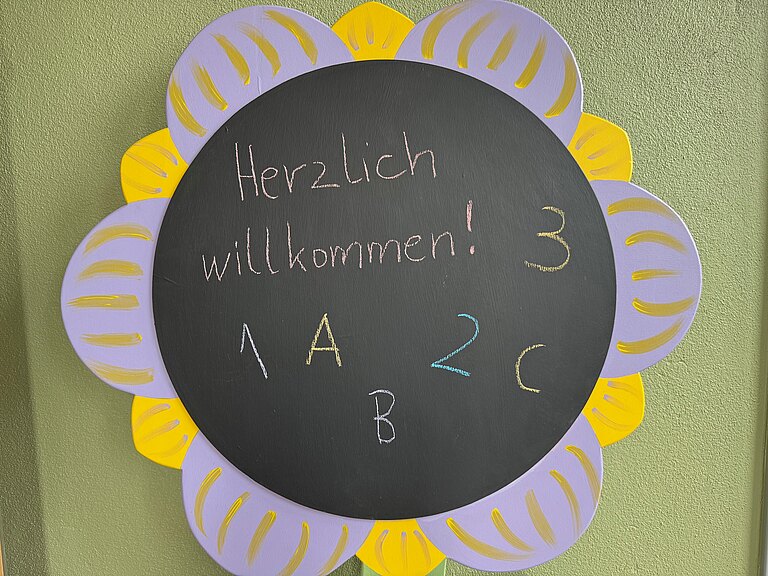 Herzlich
willkommen!
3
1 A 2 C
B